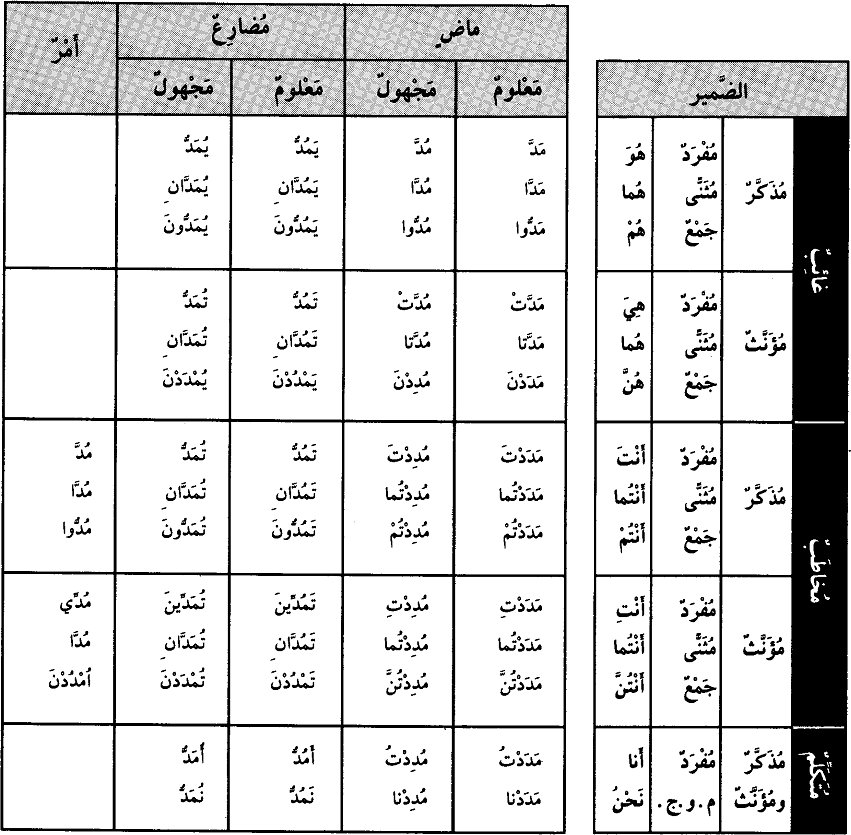 الضَّمير ماضٍ مُضارِعٌ أَمْرٌ
مَعْلومٌ مَجْهولٌ مَعْلومٌ مَجْهولٌ
غائِبٌ
مُذَكَّرٌ
مُفْرَدٌ هُوَ مَدَّ مُدَّ يَمُدُّ يُمَدُّ
مُثَنًّى هُما مَدَّا مُدَّا يَمُدَّانِ يُمَدَّانِ
جَمْعٌ هُمْ مَدُّوا مُدُّوا يَمُدُّونَ يُمَدُّونَ
مُؤَنَّثٌ
مُفْرَدٌ هِيَ مَدَّتْ مُدَّتْ تَمُدُّ تُمَدُّ
مُثَنًّى هُما مَدَّتا مُدَّتا تَمُدَّانِ تُمَدَّانِ
جَمْعٌ هُنَّ مَدَدْنَ مُدِدْنَ يَمْدُدْنَ يُمْدَدْنَ
مُخاطَبٌ
مُذَكَّرٌ
مُفْرَدٌ أَنْتَ مَدَدْتَ مُدِدْتَ تَمُدُّ تُمَدُّ مُدَّ
مُثَنًّى أَنْتُما مَدَدْتُما مُدِدْتُما تَمُدَّانِ تُمَدَّانِ مُدَّا
جَمْعٌ أَنْتُمْ مَدَدْتُمْ مُدِدْتُمْ تَمُدُّونَ تُمَدُّونَ مُدُّوا
مُؤَنَّثٌ
مُفْرَدٌ أَنْتِ مَدَدْتِ مُدِدْتِ تَمُدِّينَ تُمَدِّينَ مُدِّي
مُثَنًّى أَنْتُما مَدَدْتُما مُدِدْتُما تَمُدَّانِ تُمَدَّانِ مُدَّا
جَمْعٌ أَنْتُنَّ مَدَدْتُنَّ مُدِدْتُنَّ تَمْدُدْنَ تُمْدَدْنَ اُمْدُدْنَ
مُتَكَلِّمٌ
مُذَكَّرٌ مُفْرَدٌ أَنا مَدَدْتُ مُدِدْتُ أَمُدُّ أُمَدُّ
ومُؤَنَّثٌ م.و.ج. نَحْنُ مَدَدْنا مُدِدْنا نَمُدُّ نُمَدُّ